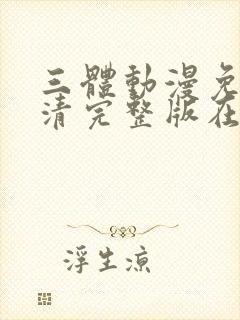 三體動漫免
清完整版在
浮生涼